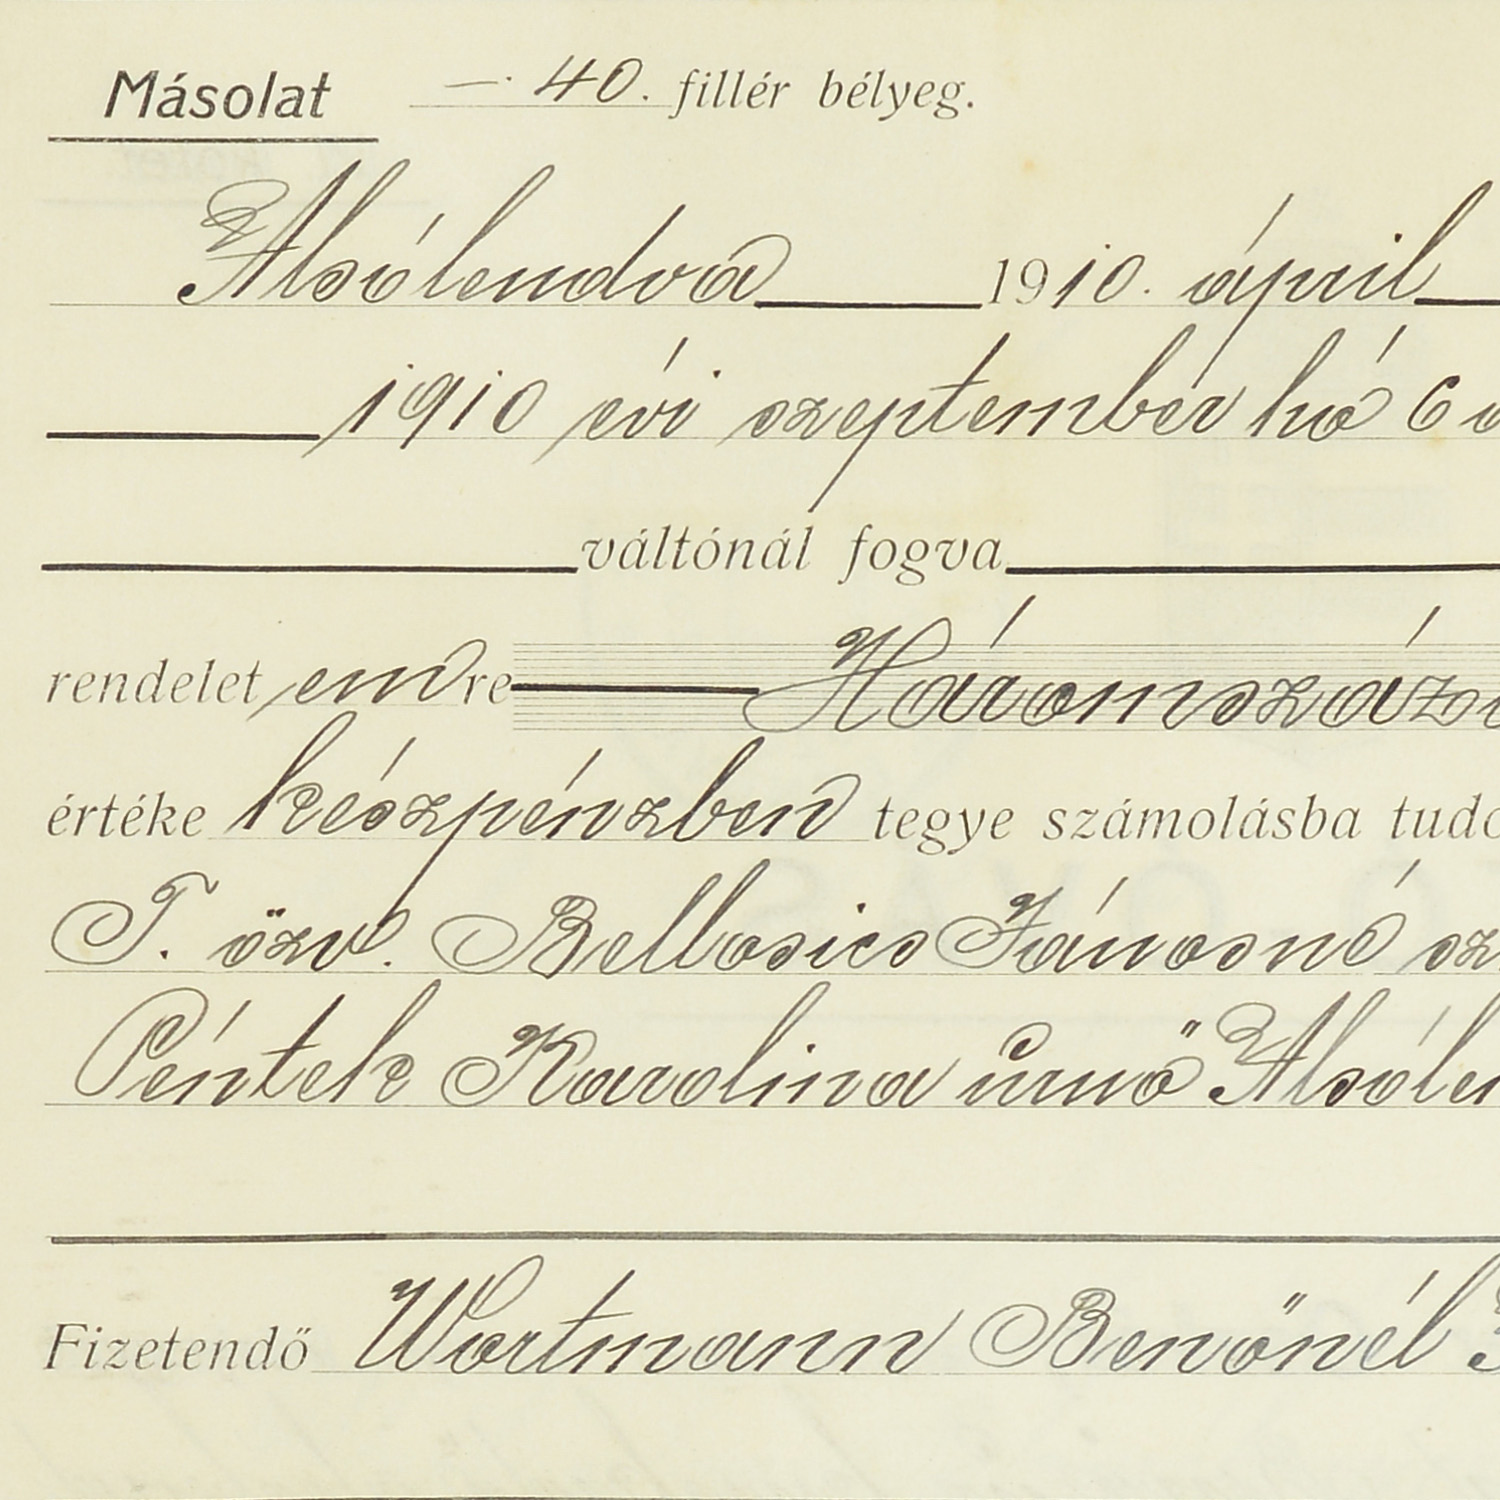 Másolat —. 40. fillér bélyeg.
Alsólendva 1910. ápril
1910 évi szeptember hó 6
váltónál fogva
rendelet em re Háromszáz
értéke készpénzben tegye számolásba
T. özv. Bellosics Jánosné
Péntek Karolina úrnő
Fizetendő Wortmann Benőnél